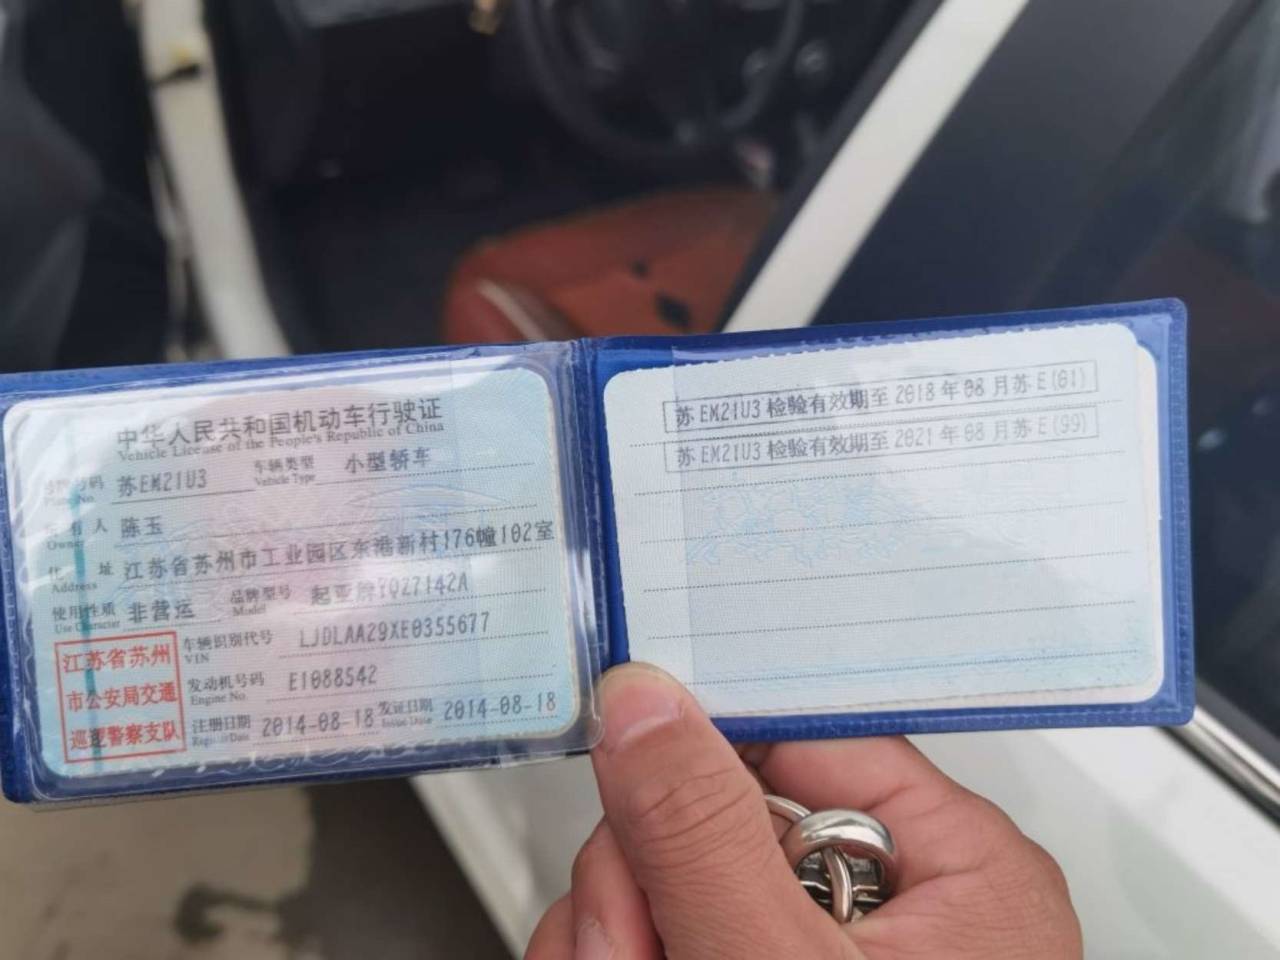 中华人民共和国机动车行驶证
Vehicle License of the People's Republic of China
号牌号码 苏EM21U3 车辆类型 小型轿车
Plate No. Vehicle Type
所有人 陈玉
Owner
住址 江苏省苏州市工业园区东港新村176幢102室
Address
使用性质 非营运 品牌型号 起亚牌YQZ7142A
Use Character Model
车辆识别代号 LJDLAA29XE0355677
VIN
发动机号码 E1088542
Engine No.
注册日期 2014-08-18 发证日期 2014-08-18
Register Date Issue Date
江苏省苏州
市公安局交通
巡逻警察支队
苏EM21U3检验有效期至2018年08月苏E(01)
苏EM21U3检验有效期至2021年08月苏E(99)